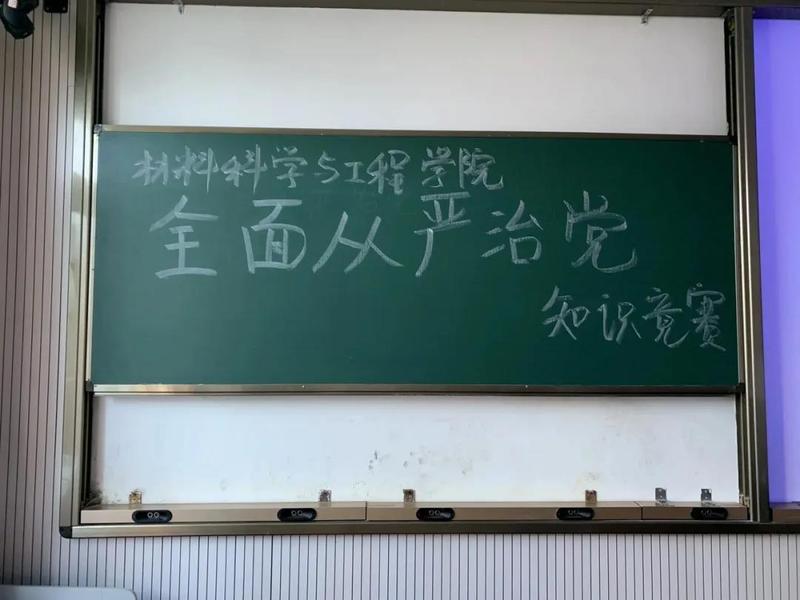 材料科学与工程学院
全面从严治党
知识竞赛